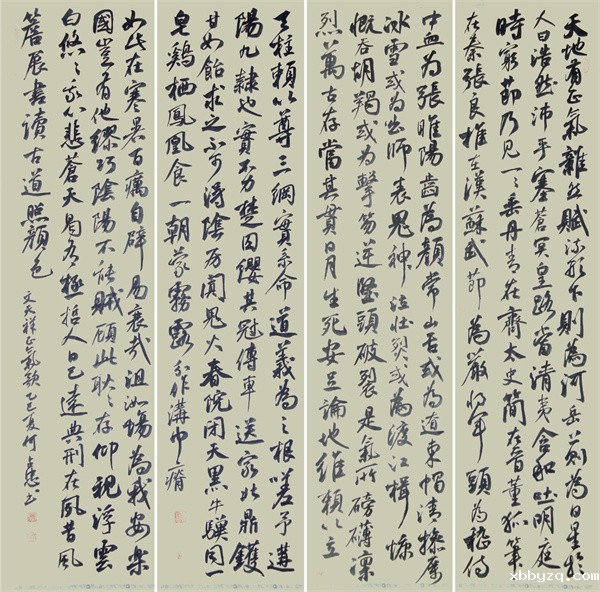 天地有正氣雜然賦流形下則為河岳上則為日星於
人曰浩然沛乎塞蒼冥皇路當清夷含和吐明庭
時窮節乃見一一垂丹青在齊太史簡在晉董狐筆
在秦張良椎在漢蘇武節為嚴將軍頭為嵇侍
中血為張睢陽齒為顏常山舌或為遼東帽清操厲
冰雪或為出師表鬼神泣壯烈或為渡江楫慷
慨吞胡羯或為擊笏逆豎頭破裂是氣所磅礴凜
烈萬古存當其貫日月生死安足論地維賴以立
天柱賴以尊三綱實系命道義為之根嗟予遘
陽九隸也實不力楚囚纓其冠傳車送窮北鼎鑊
甘如飴求之不可得陰房闃鬼火春院閉天黑牛驥同一
皂鷄栖鳳凰食一朝蒙霧露分作溝中瘠
如此在寒暑百癘自辟易哀哉沮洳場為我安樂
國豈有他繆巧陰陽不能賊顧此耿耿存仰視浮雲
白悠悠我心悲蒼天曷有極哲人日已遠典刑在夙昔風
簷展書讀古道照顏色
文天祥正氣歌乙巳夏何書
xbbyzq.com